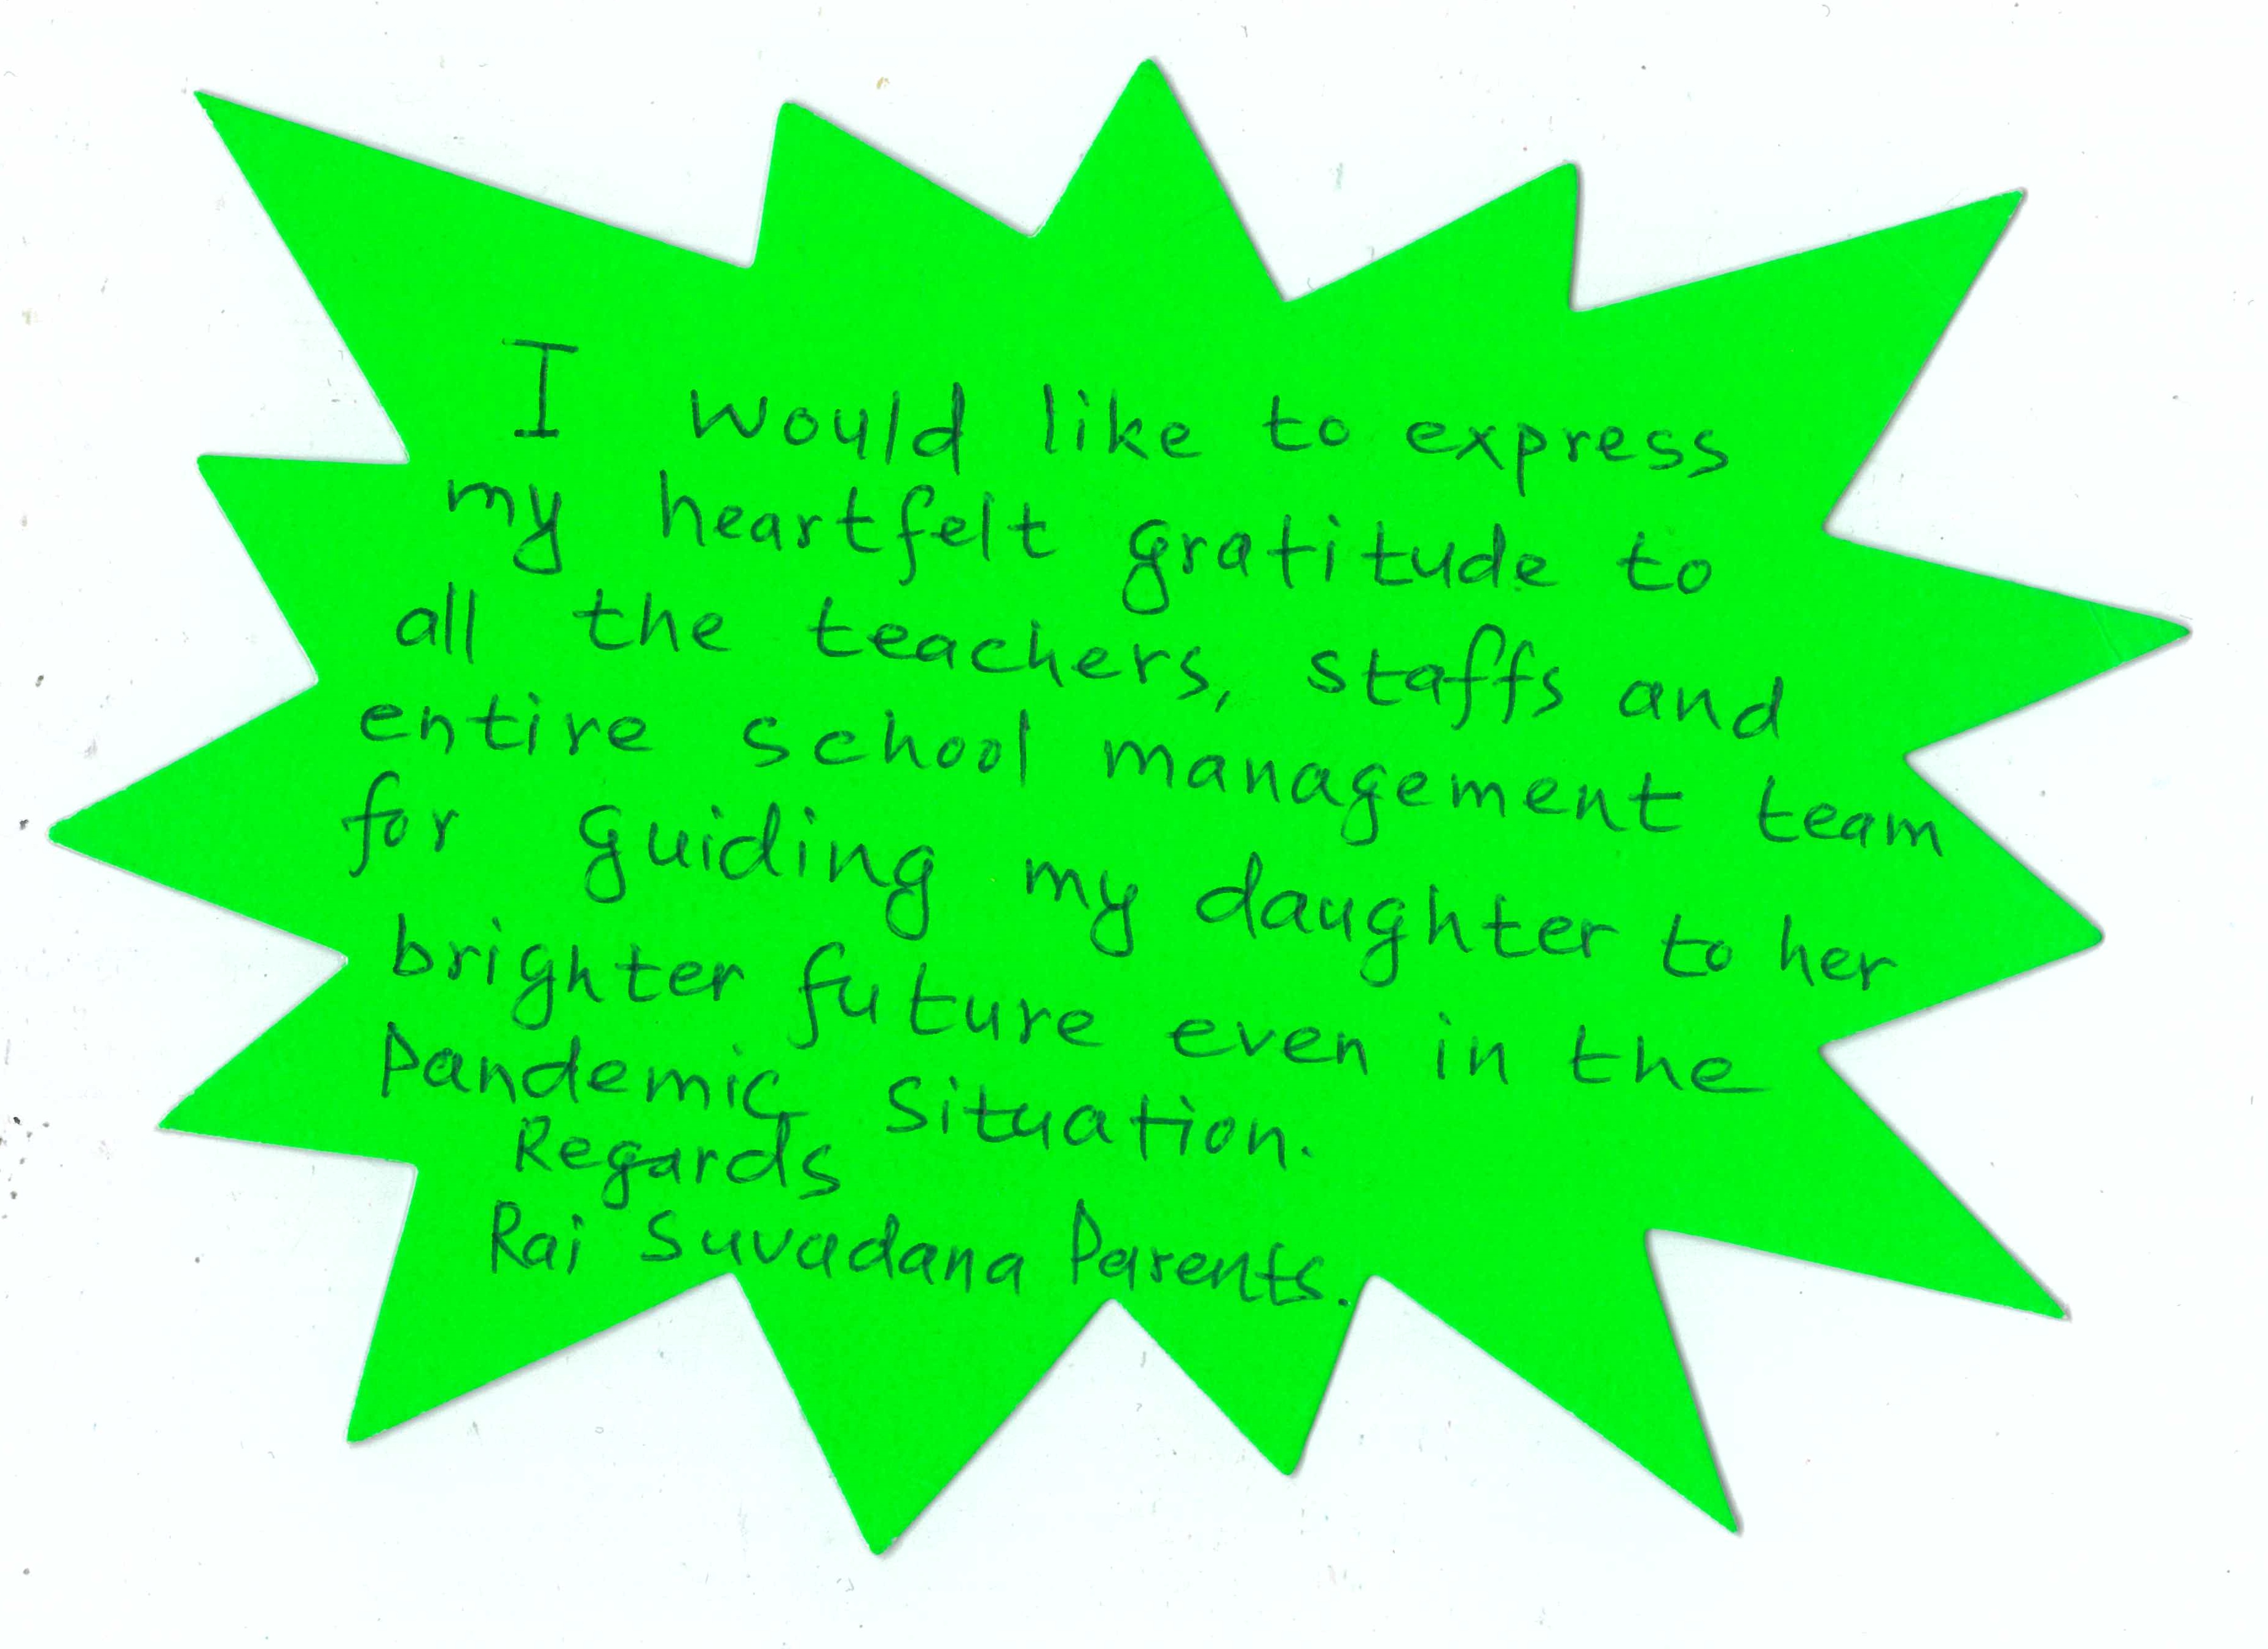 I would like to express
my heartfelt gratitude to
all the teachers, staffs and
entire school management team
for guiding my daughter to her
brighter future even in the
Pandemic situation.
Regards
Rai Suvadana Parents.